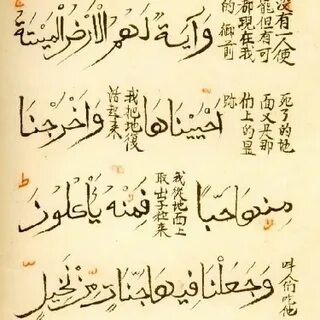 وَآيَةٌ لَهُمُ الْأَرْضُ الْمَيْتَةُ
没有一人使
能但有可
都現在我
的御前
اَحْيَيْنَاهَا وَاَخْرَجْنَا
死了的地
面又具那
上的显
跡
我把地復
活起来
مِنْهَا حَبًّا فَمِنْهُ يَأْكُلُونَ
我從地面上
取出子粒来
وَجَعَلْنَا فِيهَا جَنَّاتٍ مِنْ نَخِيلٍ
呌人们吃他